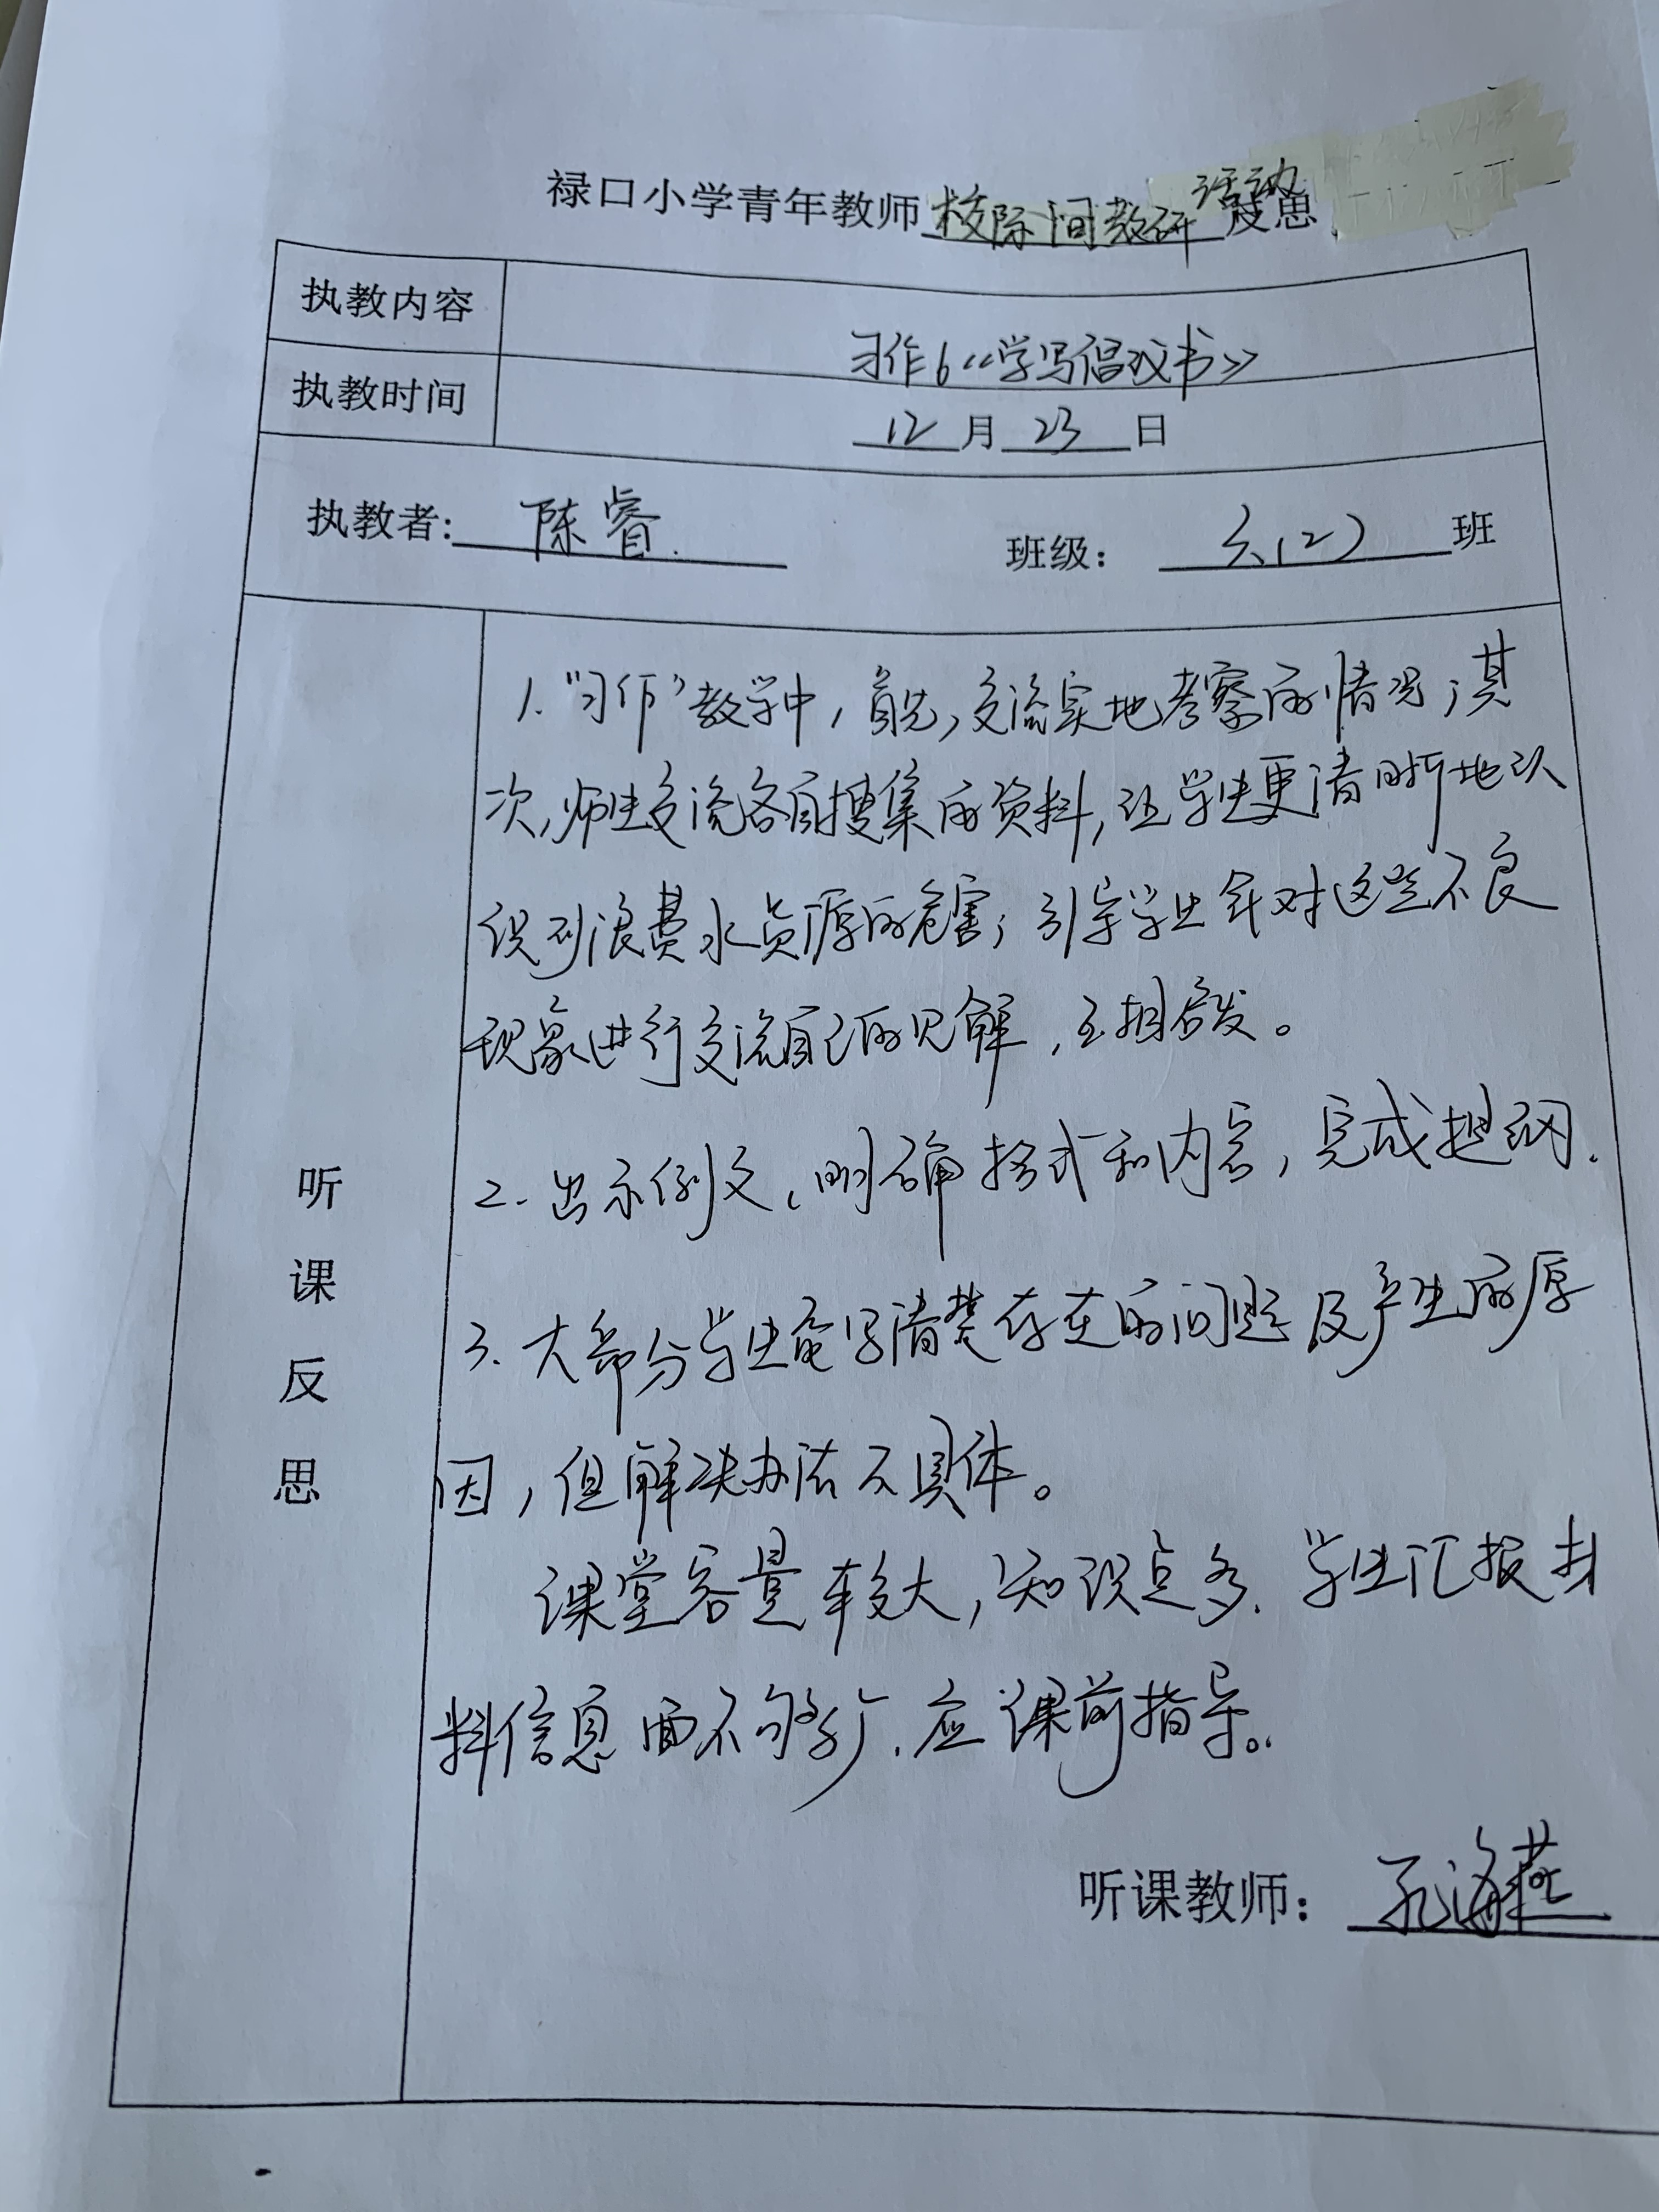 禄口小学青年教师校际间教研活动反思
执教内容
习作6《学写倡议书》
执教时间
12月23日
执教者:陈睿 班级:六(2)班
听课反思
1."习作"教学中,首先,交流实地考察的情况;其
次,师生交流各自搜集的资料,让学生更清晰地认
识到浪费水资源的危害;引导学生针对这些不良
现象进行交流自己的见解,互相启发。
2.出示例文,明确格式和内容,完成提纲.
3.大部分学生能写清楚存在的问题及产生的原
因,但解决办法不具体。
课堂容量较大,知识点多.学生汇报材
料信息面不够广.应课前指导。
听课教师:孔海燕